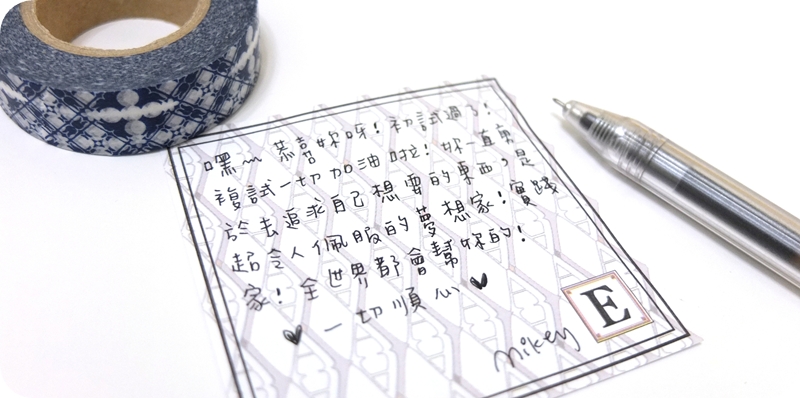 嘿~ 恭喜妳呀！初試過了！
複試一切加油啦！妳一直勇
於去追求自己想要的東西，是
超令人佩服的夢想家！實踐
家！全世界都會幫妳的！
♥ 一切順心 ♥
E
mikey